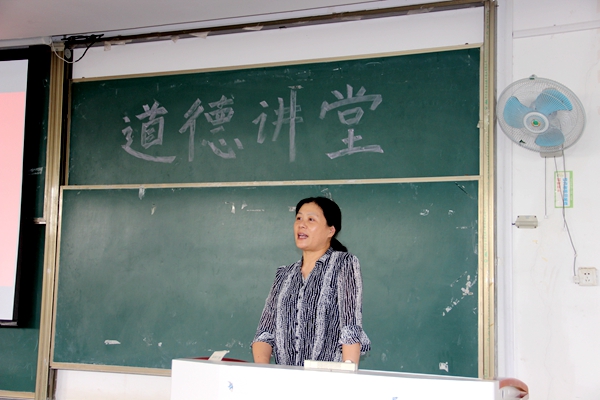 道德讲堂